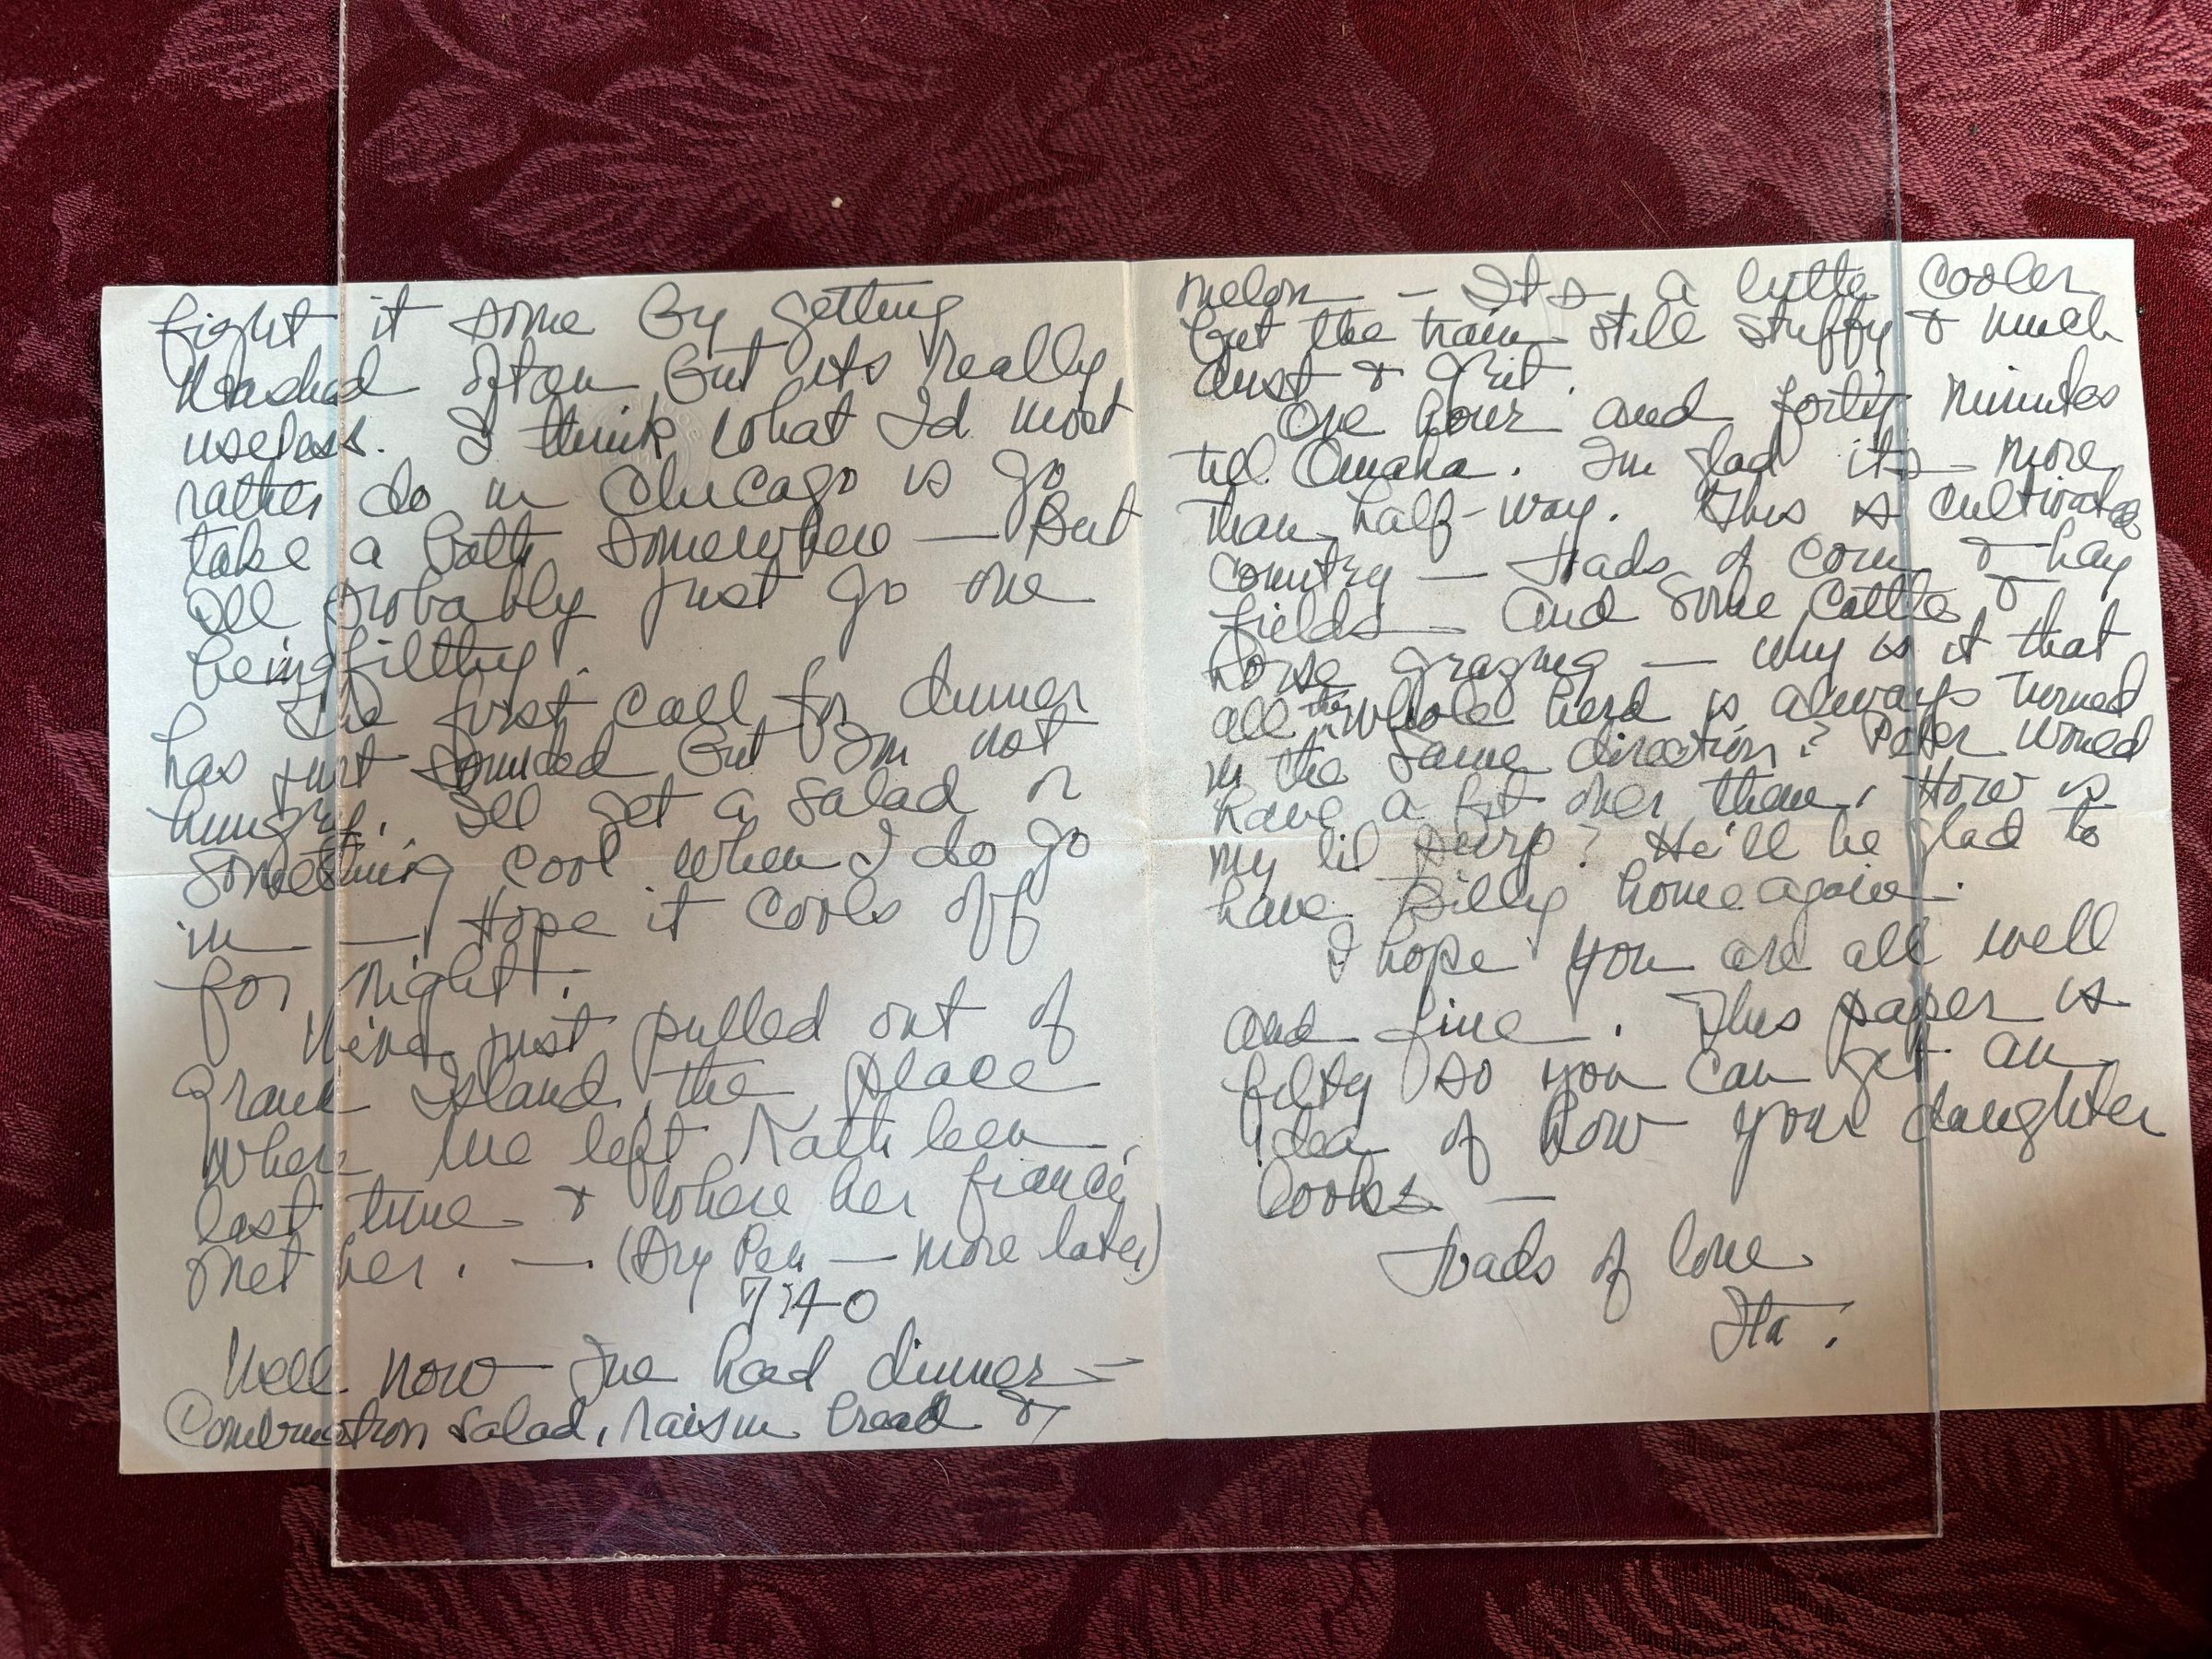 fight it some by getting
washed often but its really
useless. I think what I'd most
rather do in Chicago is go
take a bath somewhere — But
Ill probably just go one
being filthy.
The first call for dinner
has just sounded but Im not
hungry. Ill get a salad or
something cool when I do go
in — . Hope it cools off
for night.
We've just pulled out of
Grand Island, the place
where we left Kathleen
last time & where her fiancé
met her. — (Dry Pen — more later)
7:40
Well now I've had dinner —
Combination salad, raisin bread &
melon — Its a little cooler
but the train still stuffy & much
dust & grit.
One hour and forty minutes
till Omaha. Im glad its more
than half-way. This is cultivated
country — loads of corn & hay
fields and some cattle &
horse grazing — why is it that
all the whole herd is always turned
in the same direction? Peter would
have a fit over them. How is
my lil purp? He'll be glad to
have Billy home again.
I hope you are all well
and fine. This paper is
filty so you can get an
idea of how your daughter
looks —
Loads of love